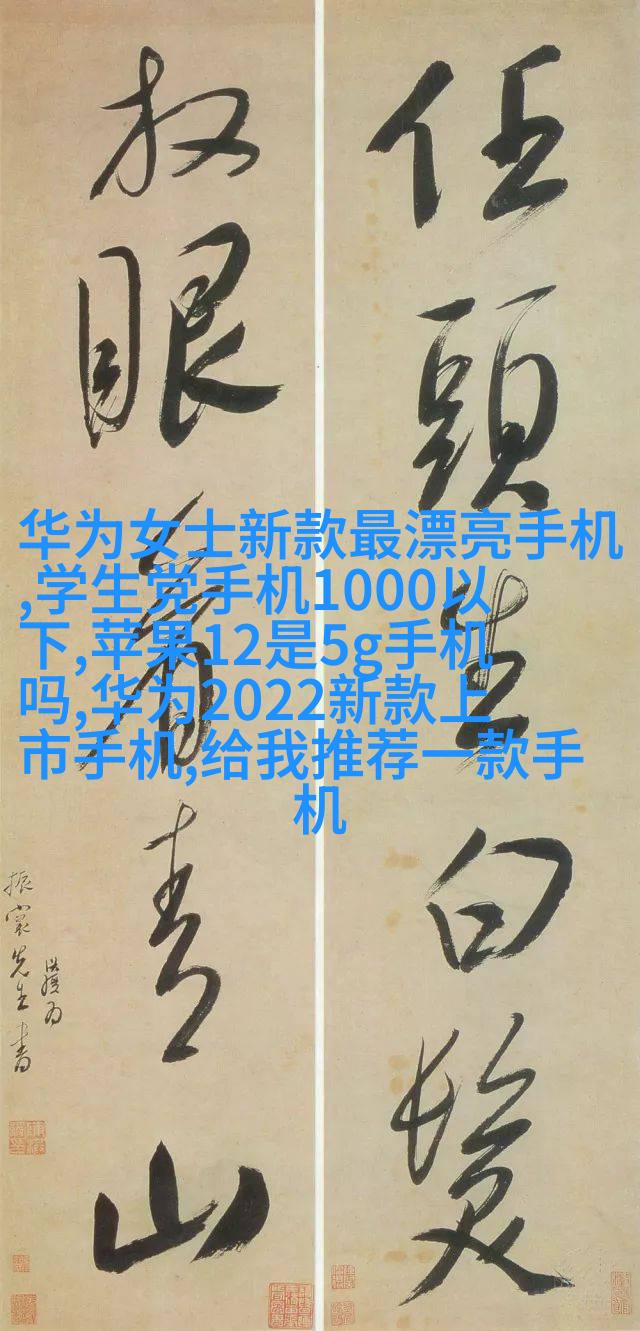 任頭生白髮
放眼看青山
振裳先生書
华为女士新款最漂亮手机
,学生党手机1000以
下,苹果12是5g手机
吗,华为2022新款上
市手机,给我推荐一款手
机